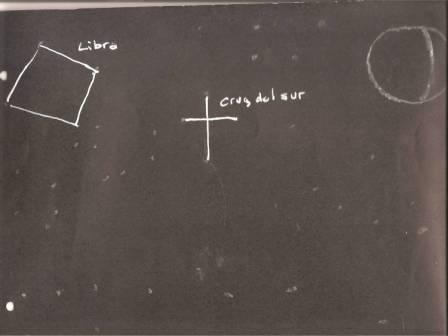 Libra
Cruz del sur